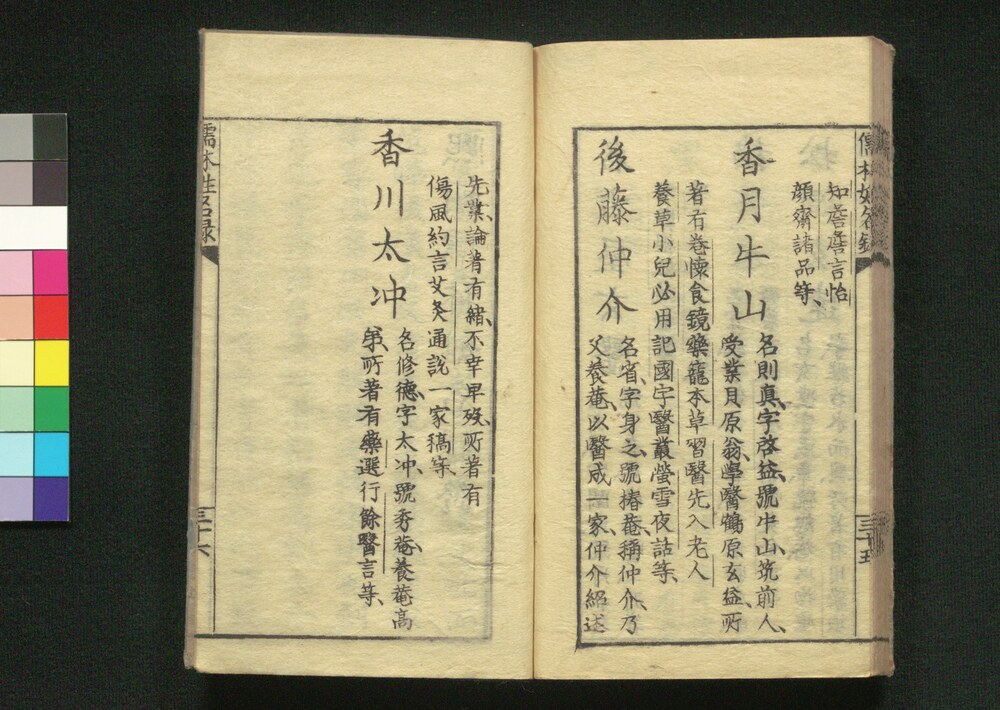 儒林姓名録
知譫譫言怡
顔齋諸品等、
香月牛山
名則真、字啓益、號牛山、筑前人、
受業貝原翁、學醫鶴原玄益、所
著有巻懐食鏡藥籠本草習醫先入老人
養草小兒必用記國字醫叢螢雪夜話等、
後藤仲介
名省、字身之、號椿菴、稱仲介、乃
父養菴、以醫成一家、仲介紹述
三十五
先業、論著有緒、不幸早歿、所著有
傷風約言艾灸通説一家稿等、
香川太冲
名修德、字太冲、號秀菴、養菴高
弟、所著有藥選行餘醫言等、
儒林姓名録
三十六